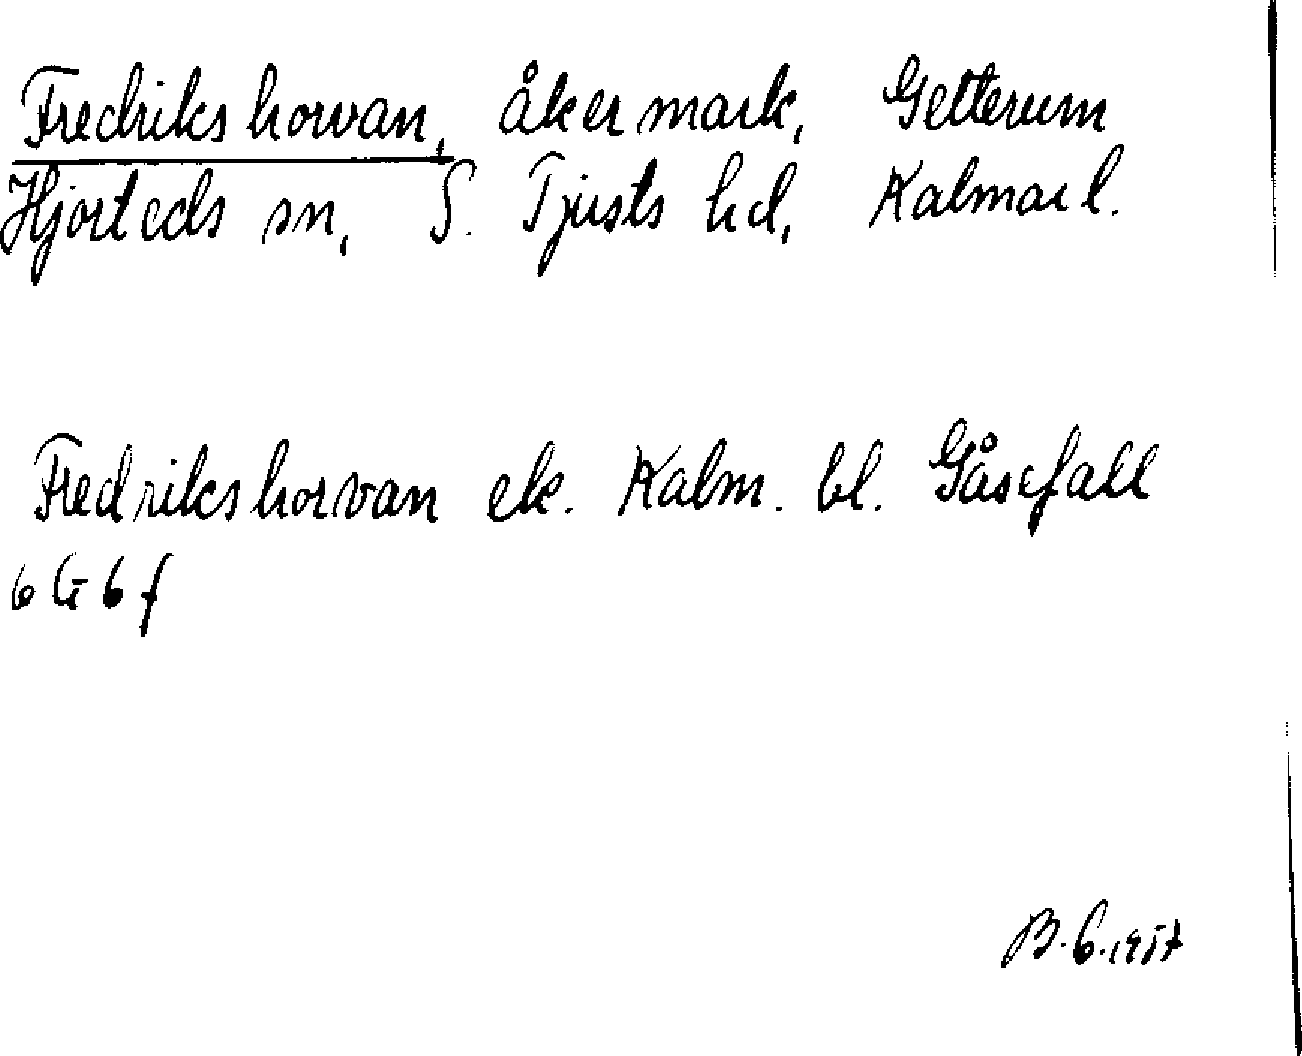 Fredrikshorvan, åkermark, Getterum
Hjorteds sn, S. Tjusts hd, Kalmar l.
Fredrikshorvan ek. Kalm. bl. Gåsefall
6 G 6 f
B. G. 1957